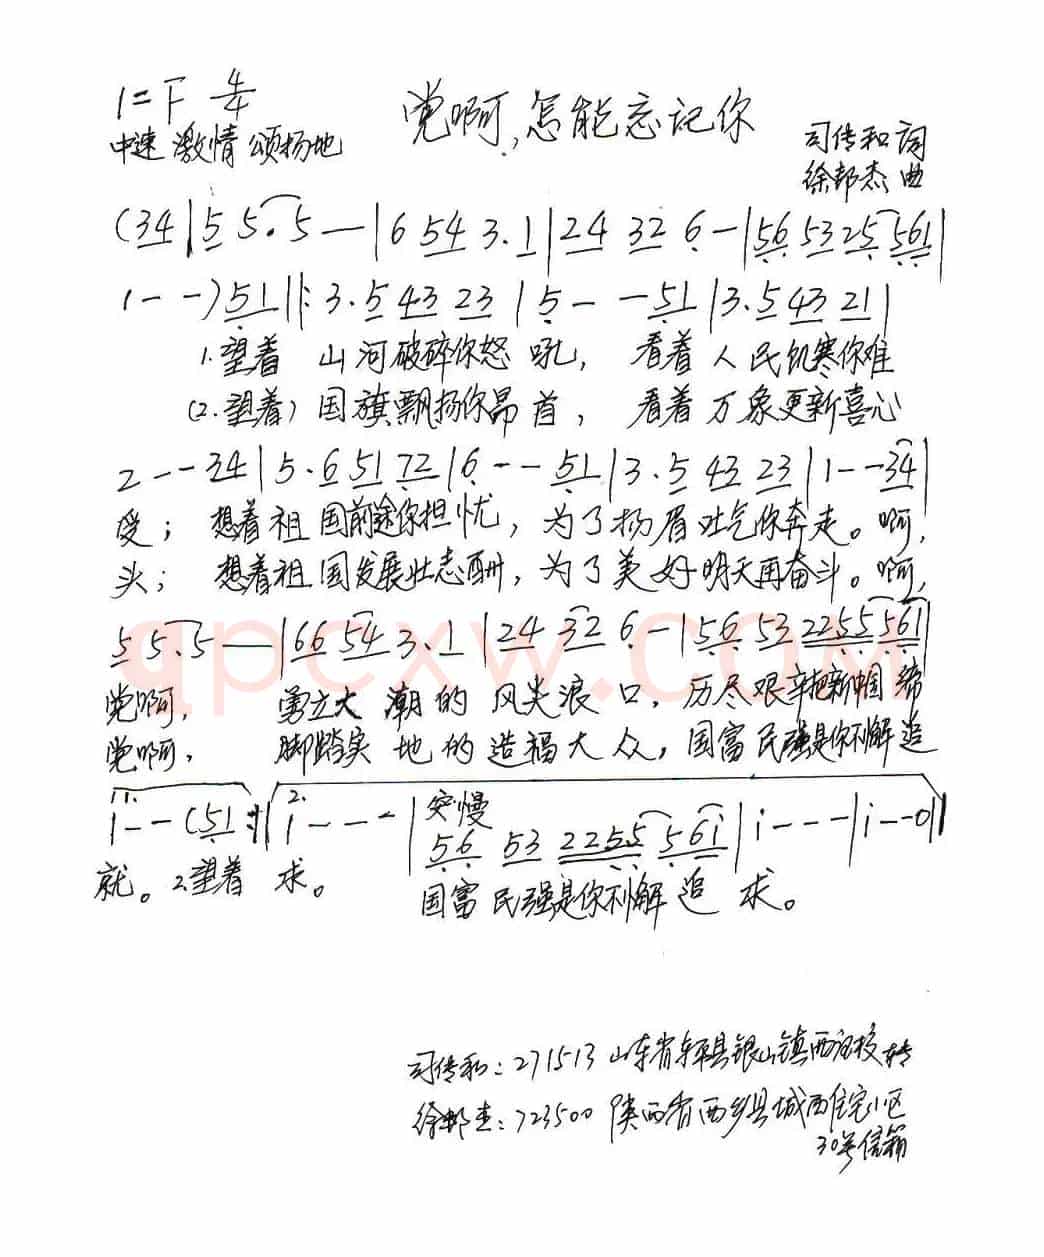 1=F 4/4
党啊,怎能忘记你
中速 激情 颂扬地
司传和 词
徐邦杰 曲
(34|5 5.5—|6 54 3.1|24 32 6-|56 53 25 561|
1--)51‖:3.5 43 23|5--51|3.5 43 21|
1.望着 山河破碎你怒吼, 看着人民饥寒你难
(2.望着)国旗飘扬你昂首, 看着万象更新喜心
2--34|5.6 51 72|6--51|3.5 43 23|1--34|
受; 想着祖国前途你担忧, 为了扬眉吐气你奔走。啊,
头; 想着祖国发展壮志酬, 为了美好明天再奋斗。啊,
5 5.5—|66 54 3.1|24 32 6-|56 53 2255 561|
党啊, 勇立大潮的风尖浪口, 历尽艰辛把新
党啊, 脚踏实地的造福大众, 国富民强是你不懈追
1. 1--(51:‖ 2. 1---|56 53 2255 561|i---|i--0‖
突慢
就。2.望着 求。 国富民强是你不懈追求。
qpcxw.com
司传和:271513 山东省东平县银山镇西校转
徐邦杰:723500 陕西省西乡县城西住宅小区
30号信箱